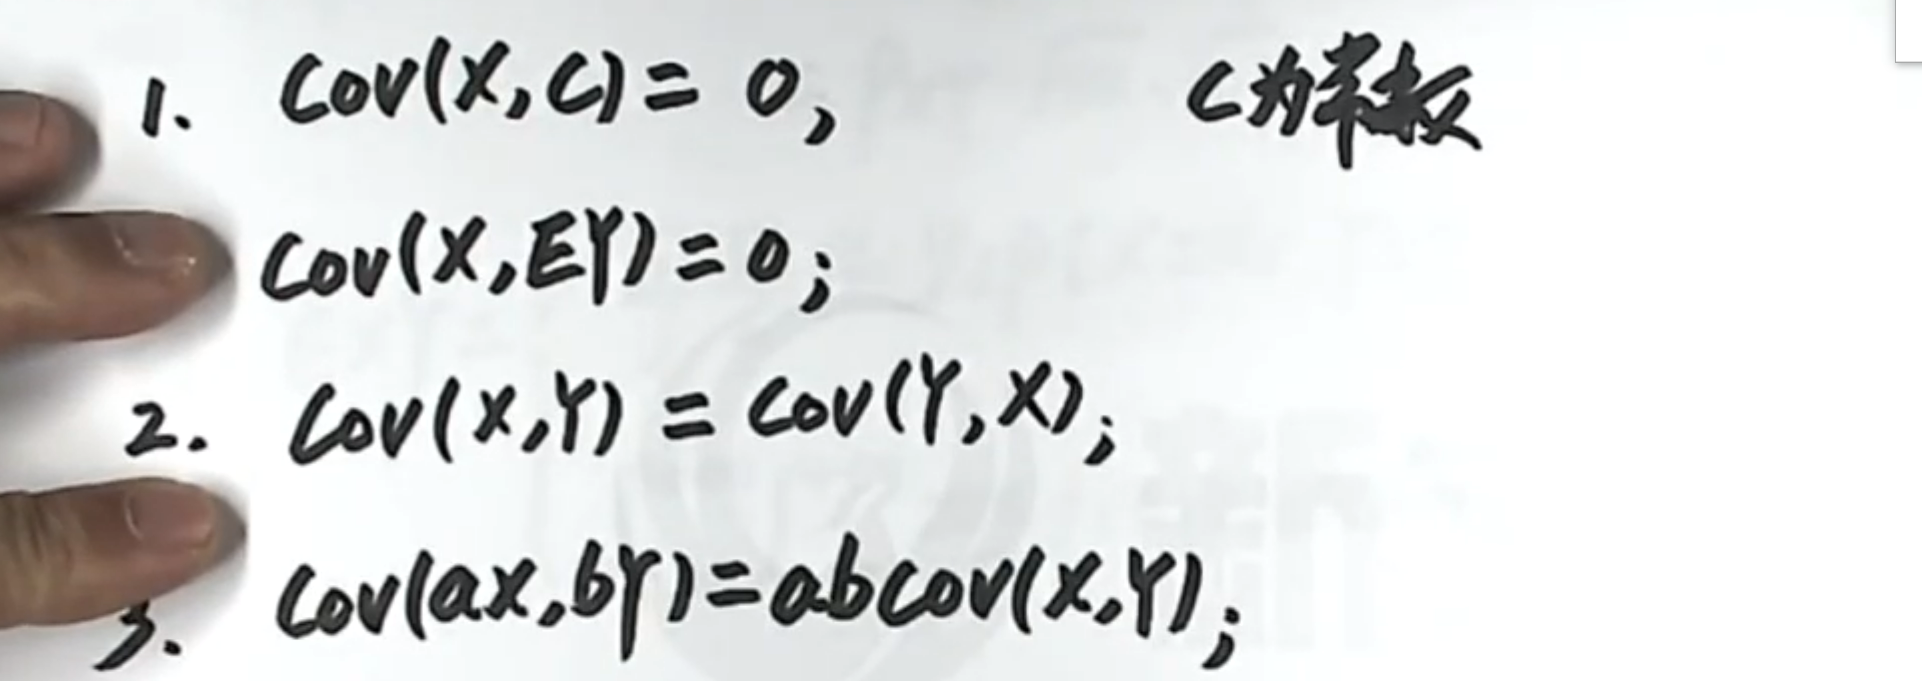 1. Cov(X,C)=0, C为常数
Cov(X,EY)=0;
2. Cov(X,Y)=Cov(Y,X);
3. Cov(aX,bY)=abCov(X,Y);